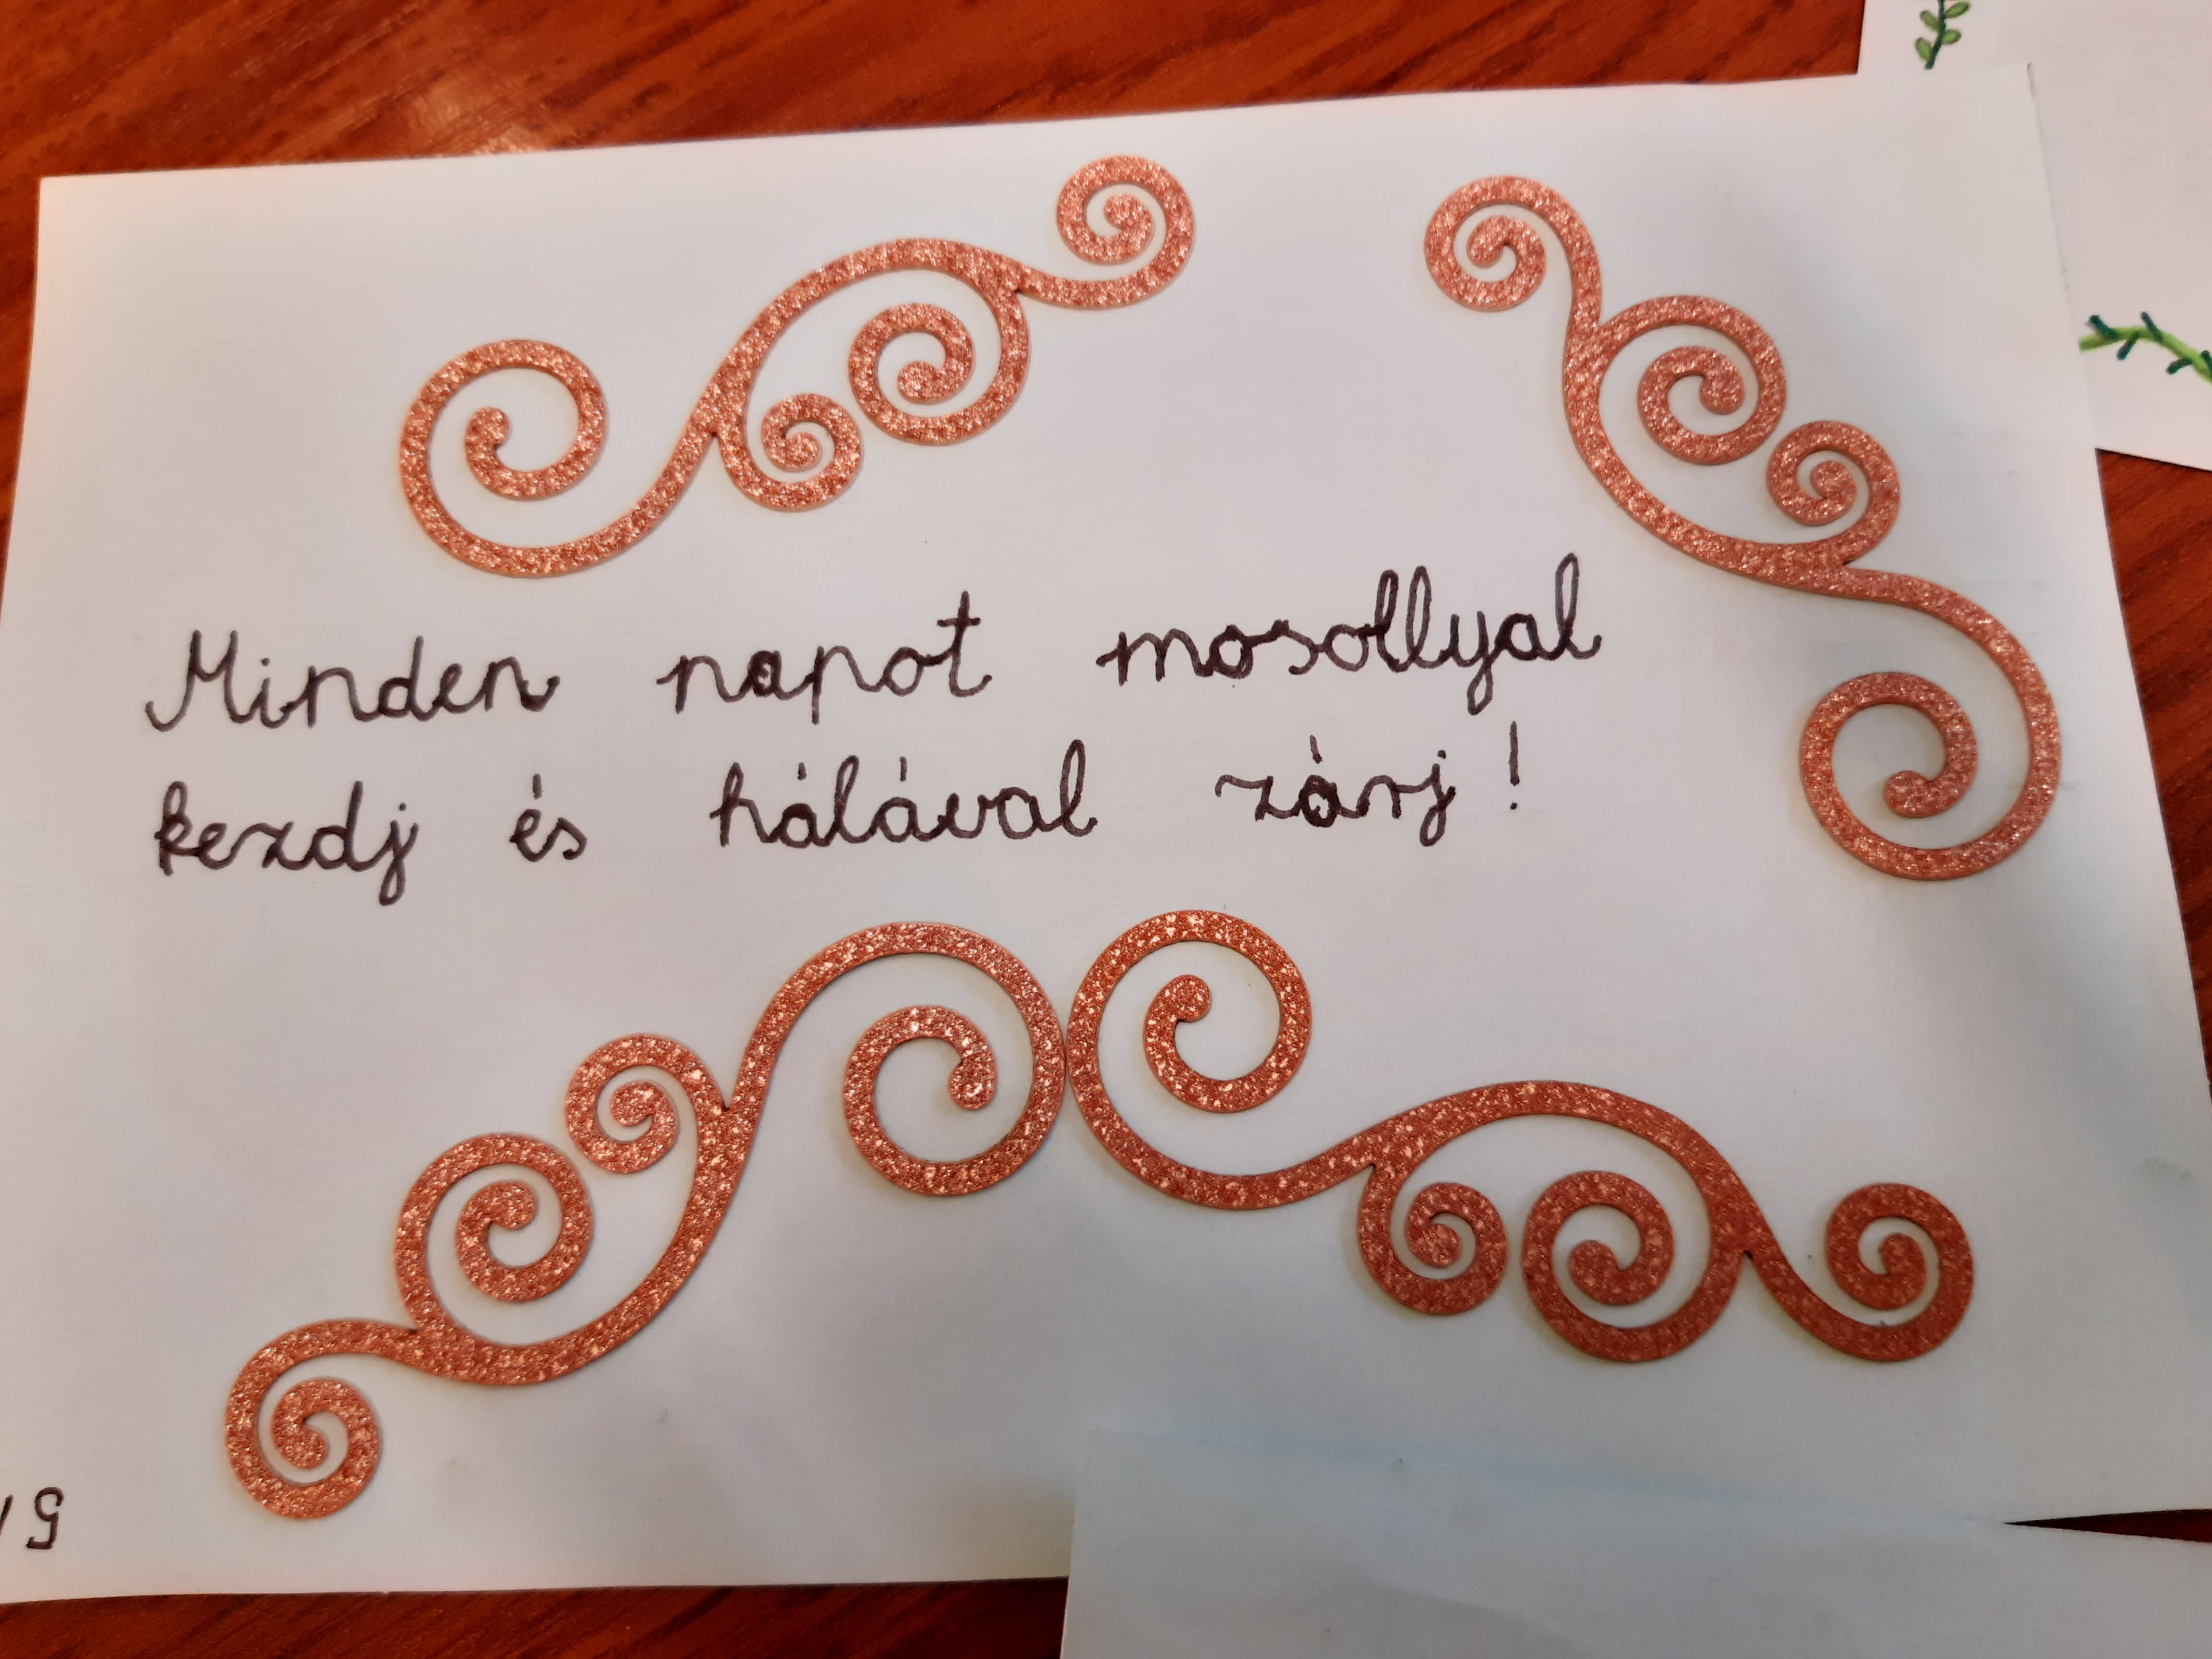 Minden napot mosollyal
kezdj és hálával zárj!